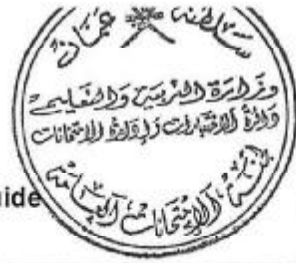 سلطنة عمان
وزارة التربية والتعليم
دائرة الاختبارات وإدارة الامتحانات
لجنة الامتحانات العامة
uide